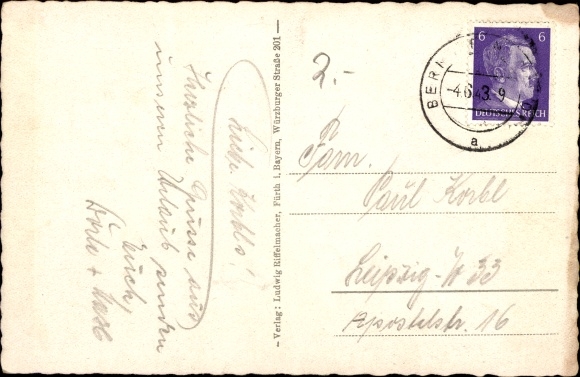 Liebe Korbls!
Herzliche Grüsse aus
unserem Urlaub senden
Euch,
– Verlag: Ludwig Riffelmacher, Fürth i. Bayern, Würzburger Straße 201 –
2.-
6 6
DEUTSCHES REICH
BERN
-4.6.43.-9
a
Fam.
Paul Korbl
Leipzig-W 33
Apostelstr. 16